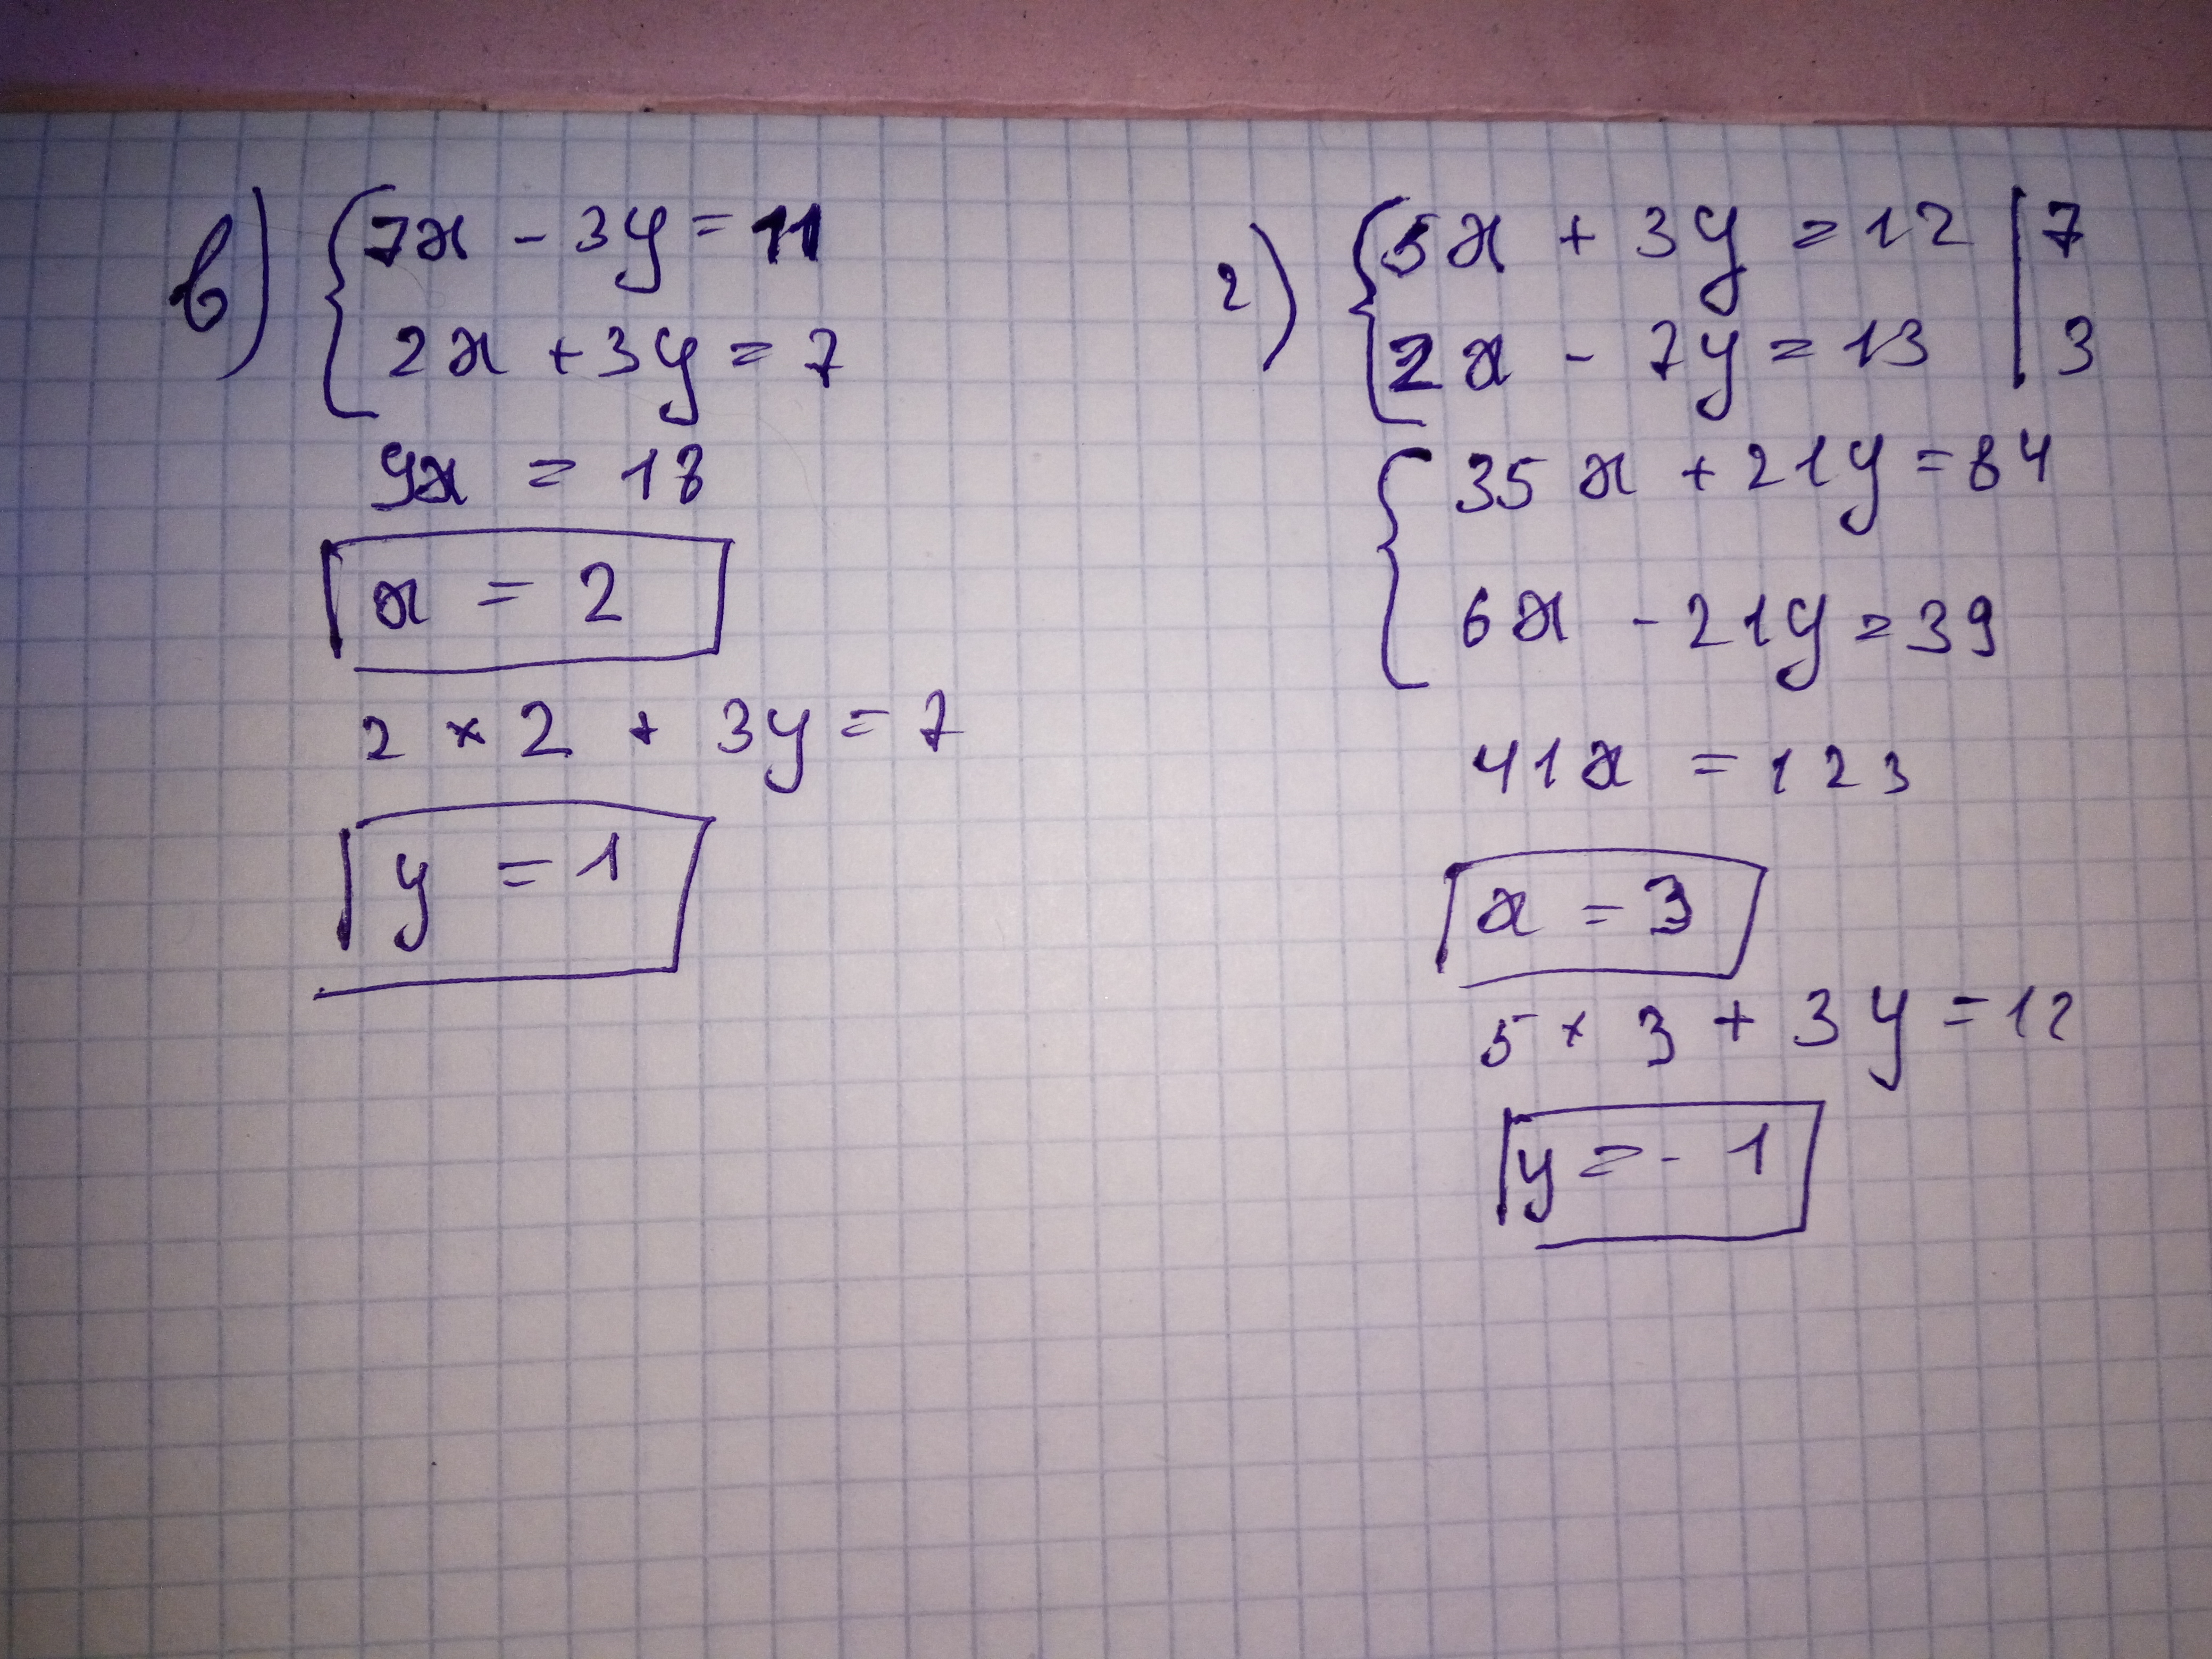 в) 7x - 3y = 11
2x + 3y = 7
9x = 18
x = 2
2 × 2 + 3y = 7
y = 1
г) 5x + 3y = 12 | 7
2x - 7y = 13 | 3
35x + 21y = 84
6x - 21y = 39
41x = 123
x = 3
5 × 3 + 3y = 12
y = - 1